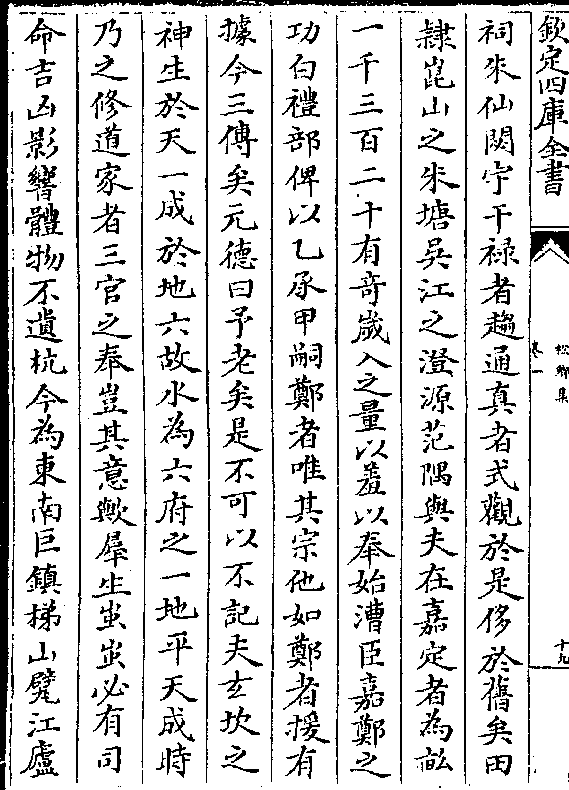 欽定四庫全書
松鄉集
卷一
十九
祠朱仙闕宇干禄者趨通真者式觀於是侈於舊矣田
隸崑山之朱塘吳江之澄源范隅與夫在嘉定者為畝
一千三百二十有奇歲入之量以羞以奉始漕臣嘉鄭之
功白禮部俾以乙承甲嗣鄭者唯其宗他如鄭者援有
據今三傳矣元德曰予老矣是不可以不記夫玄坎之
神生於天一成於地六故水為六府之一地平天成時
乃之修道家者三官之奉豈其意歟羣生蚩蚩必有司
命吉凶影響體物不遺杭今為東南巨鎮梯山躄江廬